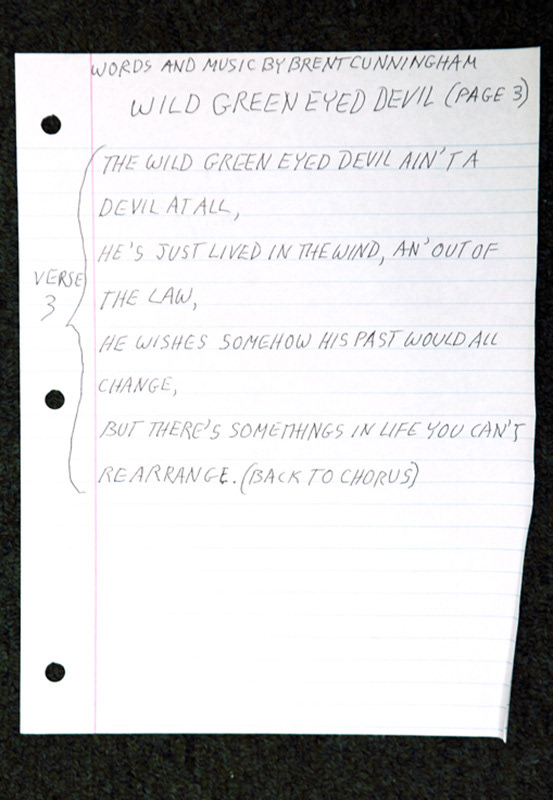 WORDS AND MUSIC BY BRENT CUNNINGHAM
WILD GREEN EYED DEVIL (PAGE 3)
VERSE
3
THE WILD GREEN EYED DEVIL AIN'T A
DEVIL AT ALL,
HE'S JUST LIVED IN THE WIND, AN' OUT OF
THE LAW,
HE WISHES SOMEHOW HIS PAST WOULD ALL
CHANGE,
BUT THERE'S SOMETHINGS IN LIFE YOU CAN'T
REARRANGE. (BACK TO CHORUS)